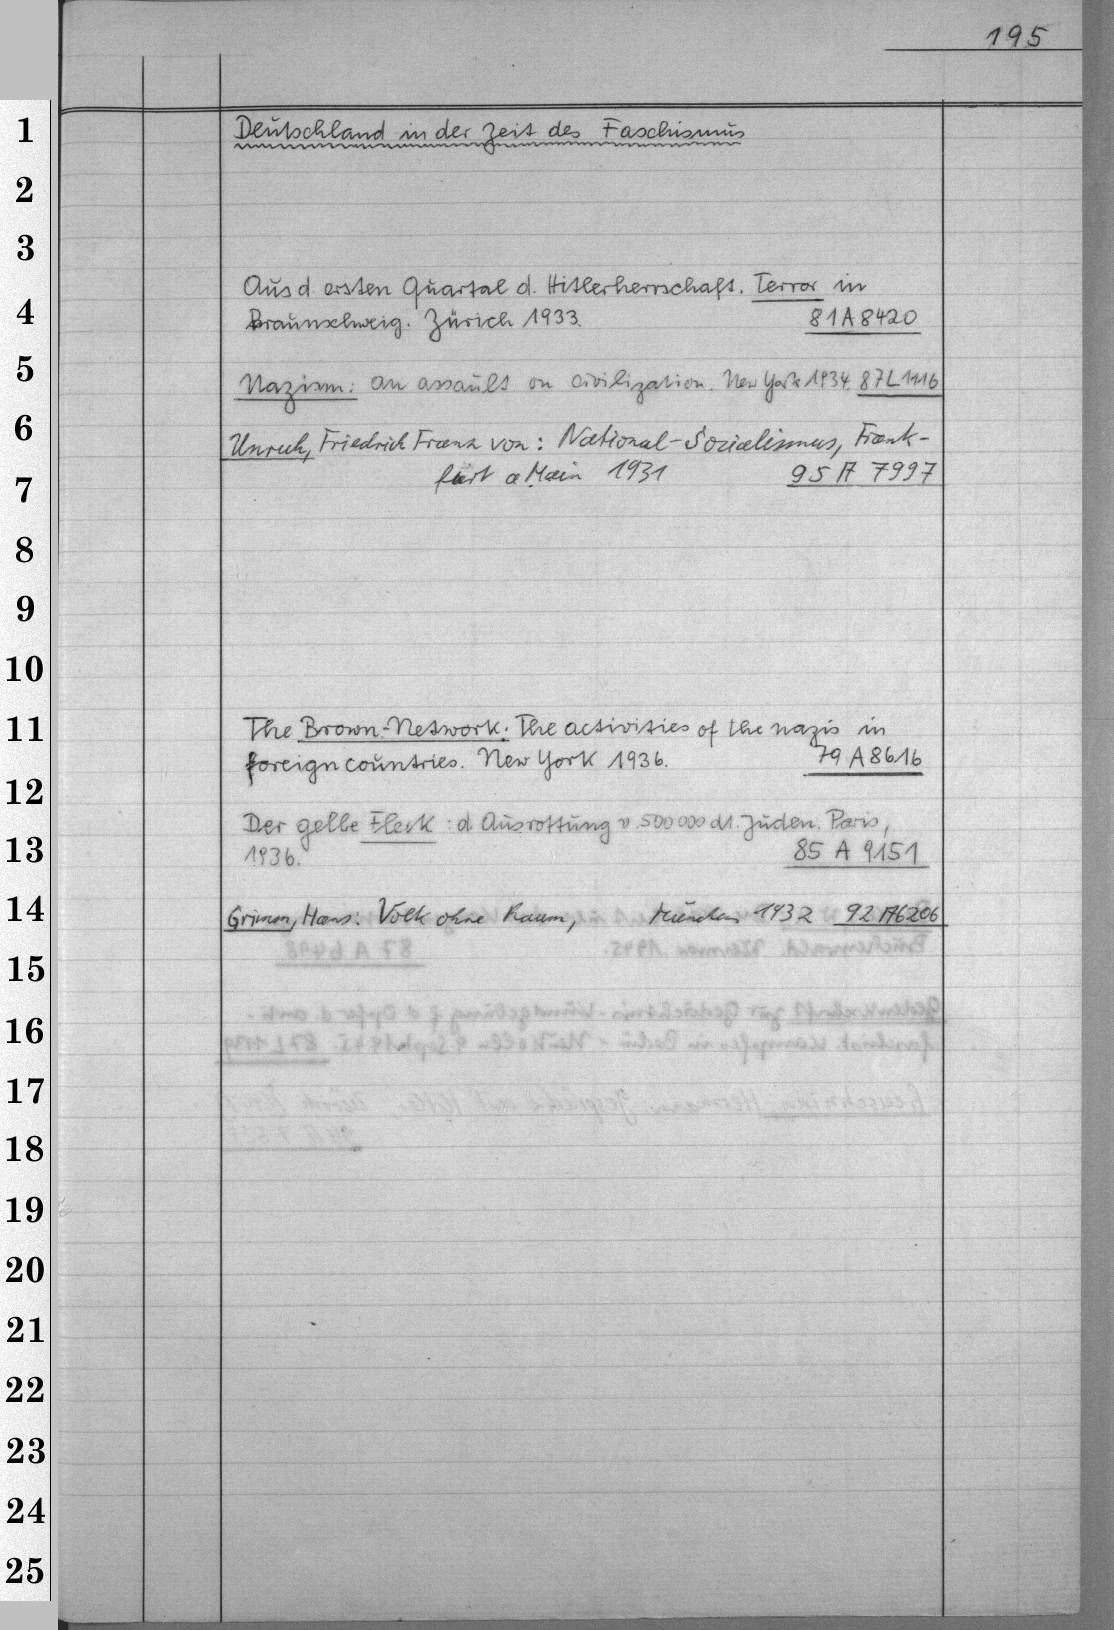 195
1
Deutschland in der Zeit des Faschismus
2
3
Aus d. ersten Quartal d. Hitlerherrschaft. Terror in
4
Braunschweig. Zürich 1933. 81A8420
5
Nazism: an assault on civilization. New York 1934. 87L1116
6
Unruh, Friedrich Franz von: National-Sozialismus, Frank-
7
furt a Main 1931 95 A 7997
8
9
10
11
The Brown-Network: The activities of the nazis in
foreign countries. New York 1936. 79 A 8616
12
Der gelbe Fleck : d. Ausrottung v. 500 000 dt. Juden. Paris,
13
1936. 85 A 9151
14
Grimm, Hans: Volk ohne Raum, München 1932 92 A6206
15
16
17
18
19
20
21
22
23
24
25